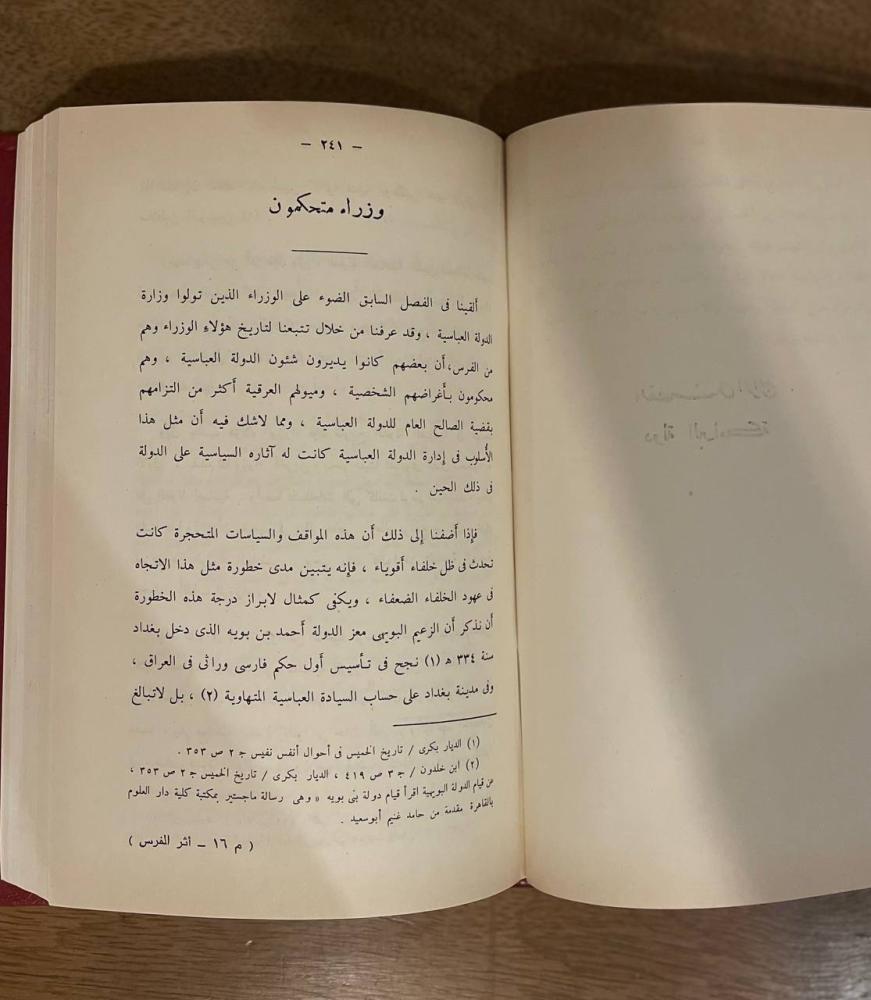 — ٢٤١ —
وزراء متحكمون
ألقينا فى الفصل السابق الضوء على الوزراء الذين تولوا وزارة
الدولة العباسية ، وقد عرفنا من خلال تتبعنا لتاريخ هؤلاء الوزراء وهم
من الفرس، أن بعضهم كانوا يديرون شئون الدولة العباسية ، وهم
محكومون بأغراضهم الشخصية ، وميولهم العرقية أكثر من التزامهم
بقضية الصالح العام للدولة العباسية ، ومما لاشك فيه أن مثل هذا
الأسلوب فى إدارة الدولة العباسية كانت له آثاره السياسية على الدولة
فى ذلك الحين .
فإذا أضفنا إلى ذلك أن هذه المواقف والسياسات المتحجرة كانت
تحدث فى ظل خلفاء أقوياء ، فإنه يتبين مدى خطورة مثل هذا الاتجاه
فى عهود الخلفاء الضعفاء ، ويكفى كمثال لابراز درجة هذه الخطورة
أن نذكر أن الزعيم البويهى معز الدولة أحمد بن بويه الذى دخل بغداد
سنة ٣٣٤ ه (١) نجح فى تأسيس أول حكم فارسى وراثى فى العراق ،
وفى مدينة بغداد على حساب السيادة العباسية المتهاوية (٢) ، بل لاتبالغ
(١) الديار بكرى / تاريخ الخميس فى أحوال أنفس نفيس ج ٢ ص ٣٥٣ .
(٢) ابن خلدون / ج ٣ ص ٤١٩ ، الديار بكرى / تاريخ الخميس ج ٢ ص ٣٥٣ ،
عن قيام الدولة البويهية اقرأ قيام دولة بنى بويه « وهى رسالة ماجستير بمكتبة كلية دار العلوم
بالقاهرة مقدمة من حامد غنيم أبوسعيد .
( م ١٦ — أثر الفرس )